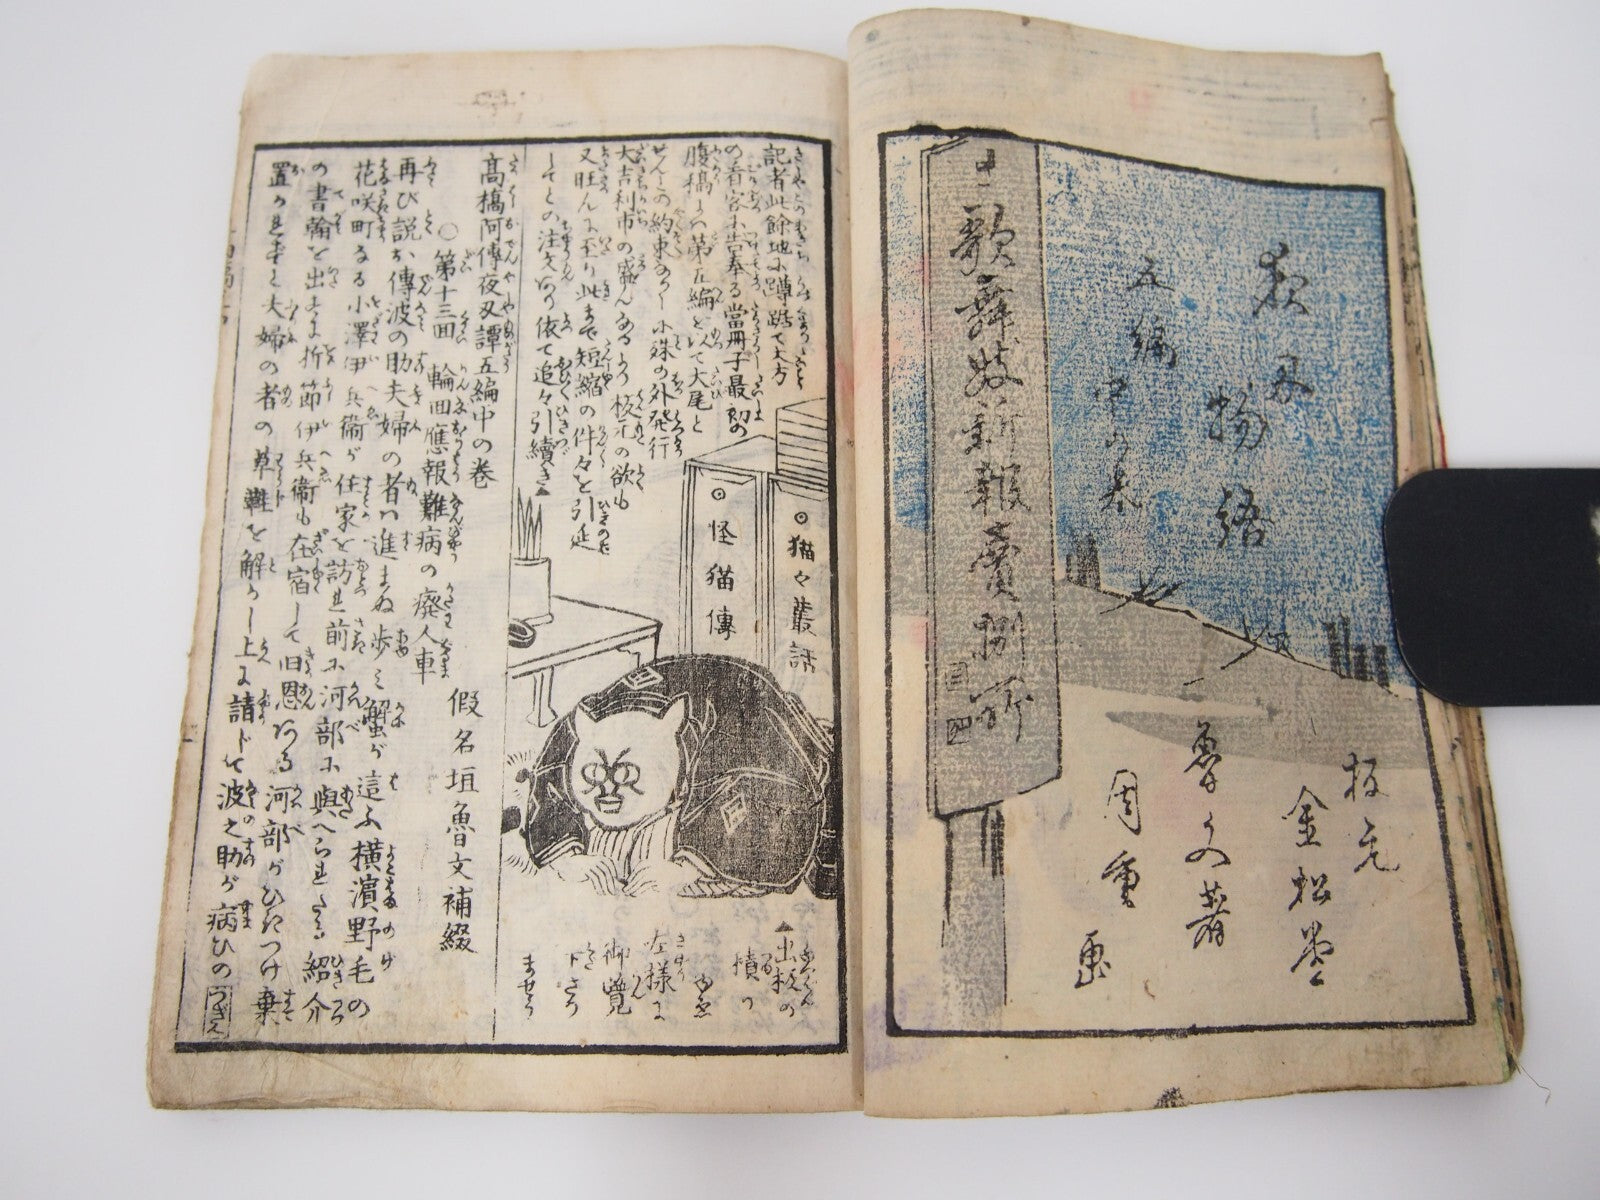 夜刃
物語
五編
中の巻
板元
金松堂
魯文著
周重
画
歌舞妓新報
記者此餘地に蹲踞て大方
の看客に告奉る當冊子最初の
腹稿は第五編を以て大尾と
せんとの約束なりしに殊の外発行
大吉利市の盛んなるより板元の欲も
又旺んに至り此まで短縮の件々を引延
してとの注文あり依て追々引續き
猫々叢話
怪猫傳
出板の
積り
ゆゑ
左様に
御覧
下さり
ませう
高橋阿傳夜刃譚五編中の巻
○第十三回 輪回應報難病の癈人車
假名垣魯文補綴
再び説お傳波の助夫婦の者は進まぬ歩み蟹が這ふ横濱野毛の
花咲町なる小澤伊兵衞が住家を訪ひ前に河部に與へられたる紹介
の書翰を出すに折節伊兵衞も在宿して旧恩ある河部がひきつけ棄
置かれずと夫婦の者の草鞋を解かし上に請ト波之助が病ひの
つぎへ